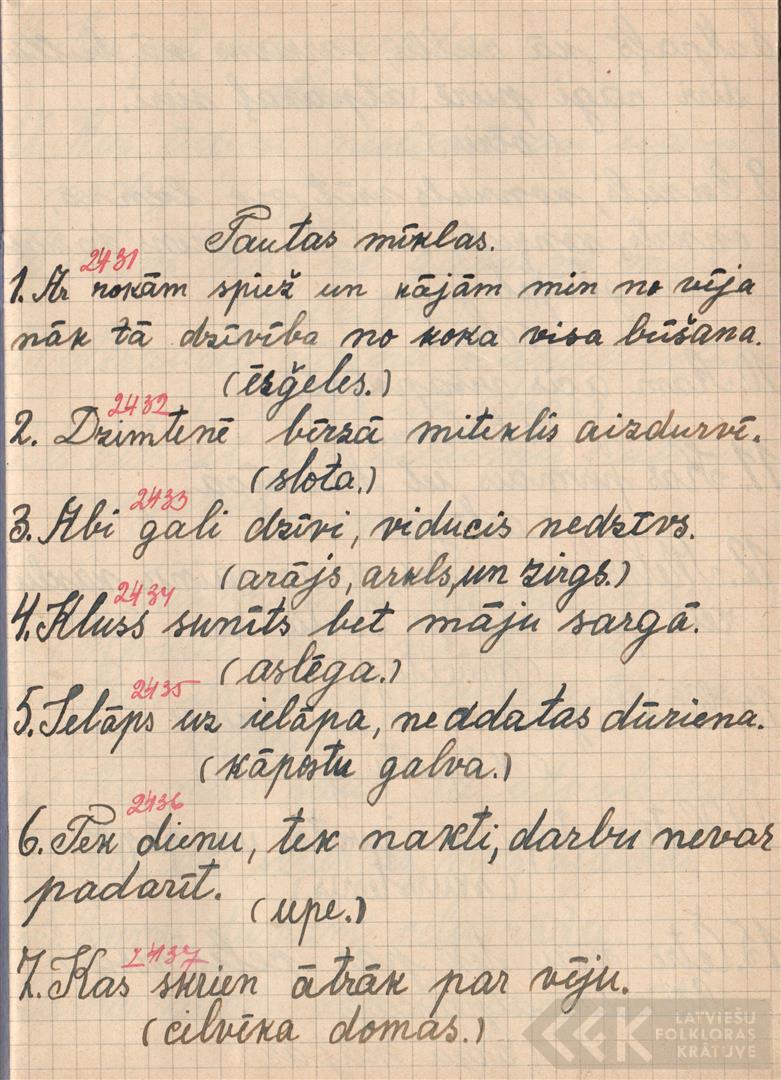 Tautas mīklas.
2431
1. Ar rokām spiež un kājām min no vēja
nāk tā dzīvība no koka visa būšana.
(ērģeles.)
2432
2. Dzimtenē bīrzā miteklīs aizdurvī.
(slota.)
2433
3. Abi gali dzīvi, viducis nedzīvs.
(arājs, arkls, un zirgs.)
2434
4. Kluss sunīts bet māju sargā.
(aslēga.)
2435
5. Ielāps uz ielāpa, ne adatas dūriena.
(kāpostu galva.)
2436
6. Tek dienu, tek nakti, darbu nevar
padarīt.
(upe.)
2437
7. Kas skrien ātrāk par vēju.
(cilvēka domas.)
LATVIEŠU
FOLKLORAS
KRĀTUVE